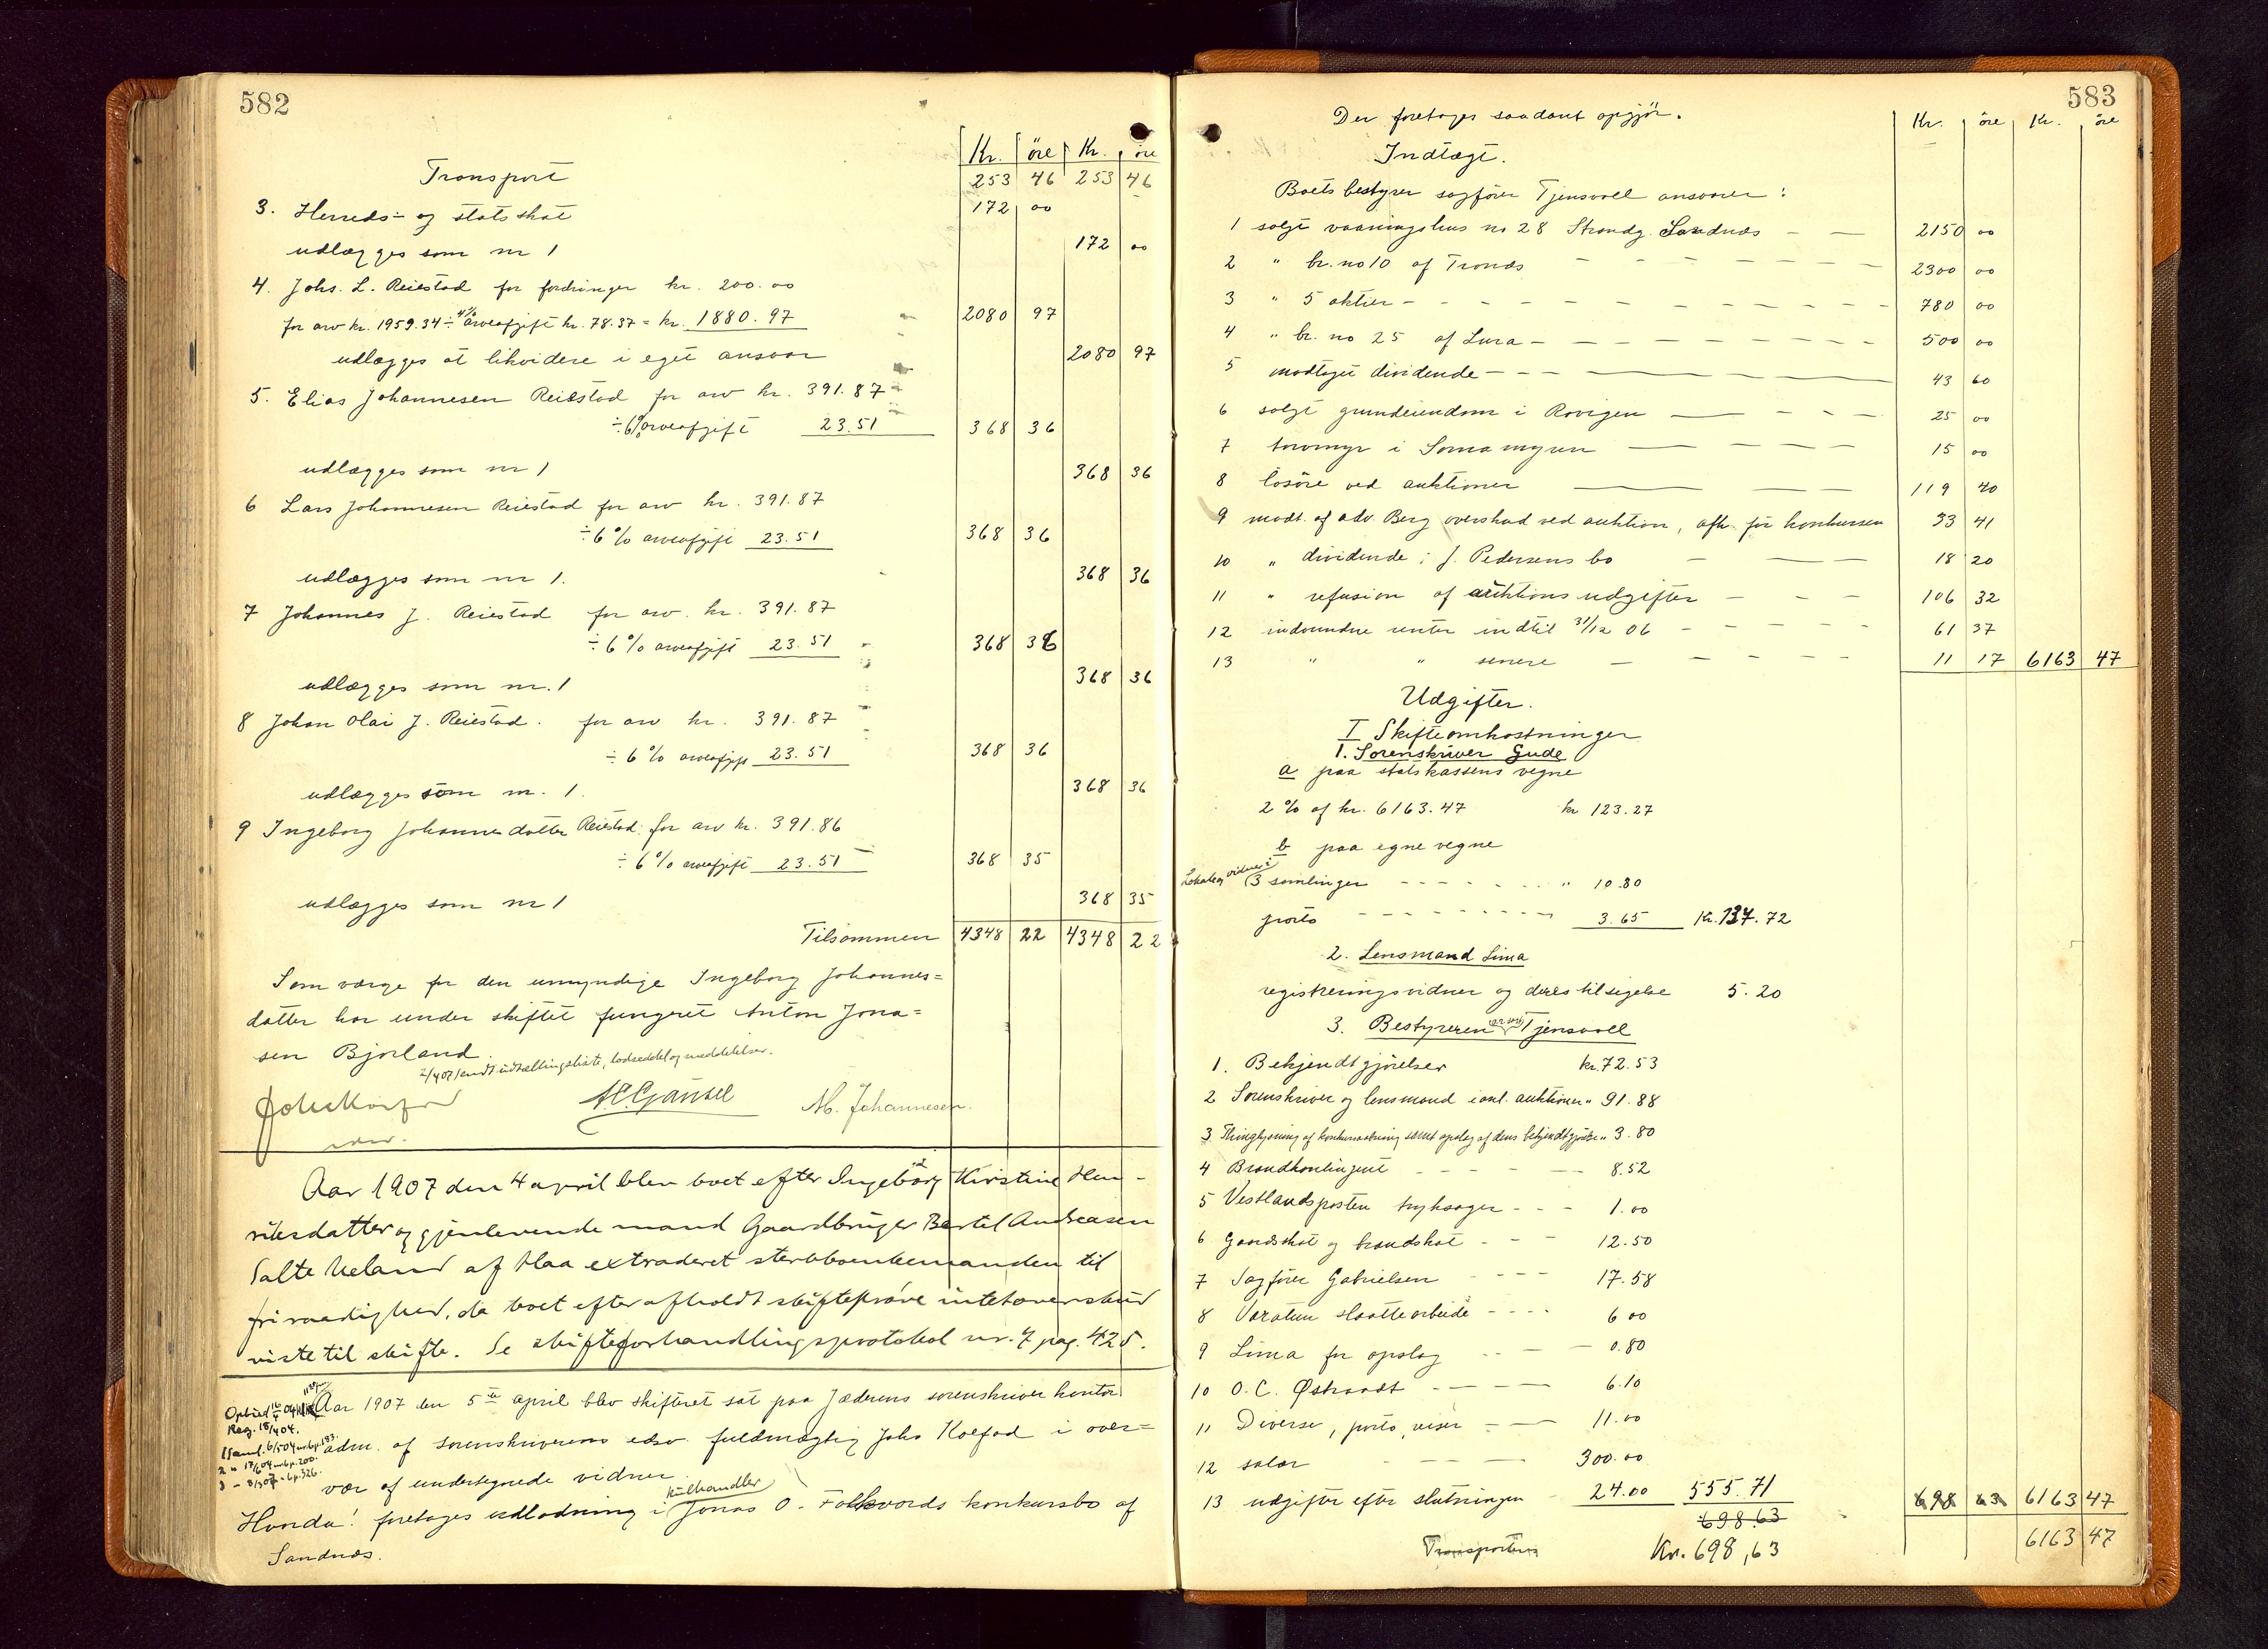 582
Kr. öre Kr. öre
Transport 253 46 253 46
3. Herreds- og statsskat 172 00
udlægges som nr 1 172 00
4. Johs. L. Reiestad for fordringer kr. 200.00
for arv kr. 1959.34 ÷ 4% arveafgift kr. 78.37 = kr. 1880.97 2080 97
udlægges at likvidere i eget ansvar 2080 97
5. Elias Johannesen Reiestad for arv kr. 391.87
÷ 6% arveafgift 23.51 368 36
udlægges som nr 1 368 36
6 Lars Johannesen Reiestad for arv kr. 391.87
÷ 6% arveafgift 23.51 368 36
udlægges som nr 1. 368 36
7 Johannes J. Reiestad for arv kr. 391.87
÷ 6% arveafgift 23.51 368 36
udlægges som nr. 1 368 36
8 Johan Olai J. Reiestad. for arv kr. 391.87
÷ 6% arveafgift 23.51 368 36
udlægges som nr. 1. 368 36
9 Ingeborg Johannesdatter Reiestad for arv kr. 391.86
÷ 6% arveafgift 23.51 368 35
udlægges som nr 1 368 35
Tilsammen 4348 22 4348 22
Som værge for den umyndige Ingeborg Johannes=
datter har under skiftet fungeret Anton Jona=
sen Bjorland.
2/4 07 sendt udtællingsliste, lodseddel og meddelelser.
M. Johannesen.
Aar 1907 den 4 april blev boet efter Ingeborg Kirstine Hen-
riksdatter og gjenlevende mand Gaardbruger Bertel Andreasen
Salte Ueland af Haa extraderet sterbboenkemanden til
fri raadighed, da boet efter afholdt skifteprøve intet overskud
viste til skifte. Se skifteforhandlingsprotokol nr. 7 pag. 425.
Aar 1907 den 5te april blev skifteret sat paa Jæderens sorenskriverkontor
Reg. 18/4 04.
1 Saml. 6/5 04 nr 6 p. 183.
2 " 17/6 04 nr 6 p. 200.
3 - 8/3 07 - 6 p. 326.
adm. af sorenskriverens edsv. fuldmægtig Johs Kolfod i over=
vær af undertegnede vidner.
Hvorda! foretages udlodning i kulhandler Jonas O. Folkvords konkursbo af
Sandnæs.
583
Der foretages saadant opgjör. Kr. öre Kr. öre
Indtægt.
Boets bestyrer sagförer Tjensvoll ansvarer:
1 solgt vaaningshus no 28 Strandg. Sandnæs 2150 00
2 " br. no 10 af Tronæs 2300 00
3 " 5 aktier 780 00
4 " br. no 25 af Lura 500 00
5 modtaget dividende 43 60
6 solgt grundeiendom i Rovigen 25 00
7 torvmyr i Somamyren 15 00
8 lösöre ved auktioner 119 40
9 modt. af adv. Berg overskud ved auktion, afh. för konkursen 33 41
10 " dividende i J. Pedersens bo 18 20
11 " refusion af auktionsudgifter 106 32
12 indvundne renter indtil 31/12 06 61 37
13 " " senere 11 17 6163 47
Udgifter.
I Skifteomkostninger
1. Sorenskriver Gude
a paa statskassens vegne
2 % af kr. 6163.47 kr 123.27
b paa egne vegne
Lokale og vidner i 3 samlinger " 10.80
porto 3.65 Kr. 137.72
2. Lensmand Lima
registreringsvidner og deres tilsigelse 5.20
3. Bestyreren Tjensvoll
1. Bekjendtgjörelser kr. 72.53
2 Sorenskriver og lensmand i anl. auktioner " 91.88
3 Thinglysning af konkursaabning samt opslag af dens bekjendtgjörelse " 3.80
4 Brandkontingent 8.52
5 Vestlandsposten tryksager 1.00
6 Gaardskat og brandskat 12.50
7 Sagförer Gabrielsen 17.58
8 Varatun slaattearbeide 6 00
9 Lima for opslag 0.80
10 O. C. Østraadt 6.10
11 Diverse, porto, reiser 11.00
12 salær 300.00
13 udgifter efter slutningen 24.00 555.71 698 63 6163 47
698.63 6163 47
Transporteres Kr. 698,63